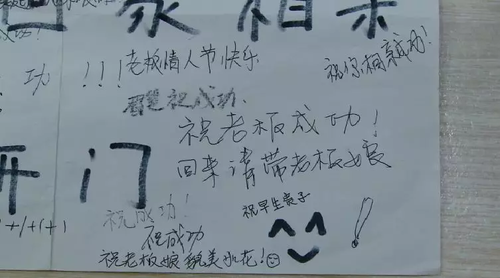 回家相亲
成功!
功
!!!老板情人节快乐
祝你相亲成功!
祝成功.
祝老板成功!
回来请带老板娘
开门
祝成功!
祝早生贵子
祝成功
祝老板娘貌美如花!